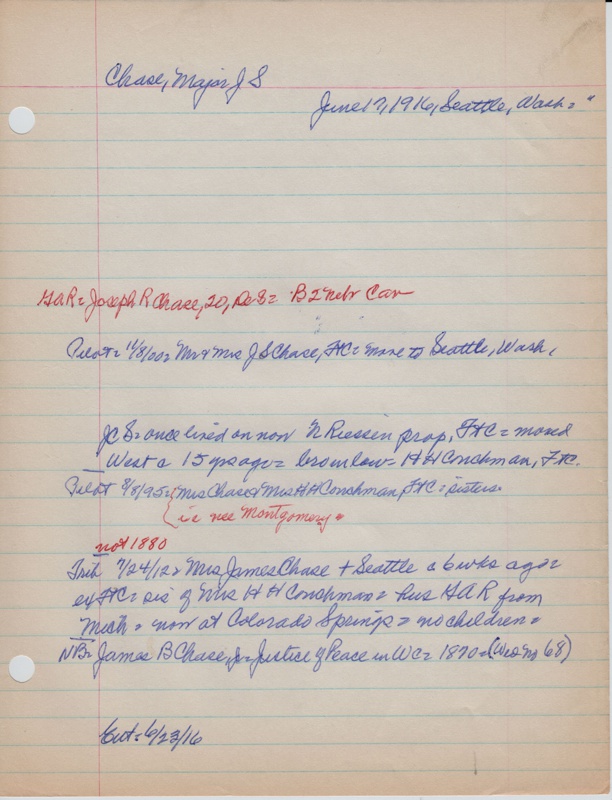 Chase, Major J S
June 17, 1916, Seattle, Wash = "
GAR = Joseph R Chase, 20, = B 2 Nebr Cav
Pilot = 11/8/00 = Mr + Mrs J S Chase, FtC = move to Seattle, Wash,
JC = once lived on now N Riessen prop, FtC = moved
West c 15 yrs ago = bro in law = H H Couchman, FtC.
Pilot 8/8/95 = Mrs Chase + Mrs H H Couchman, FtC = sisters
i e nee Montgomery =
not 1880
Trib 7/24/12 = Mrs James Chase + Seattle c 6 wks ago =
ex FtC = sis of Mrs H H Couchman = hus GAR from
Mich = now at Colorado Springs = no children =
NB = James B Chase, Jr = Justice of Peace in WC = 1870 = (Neg 68)
Ent = 6/23/16